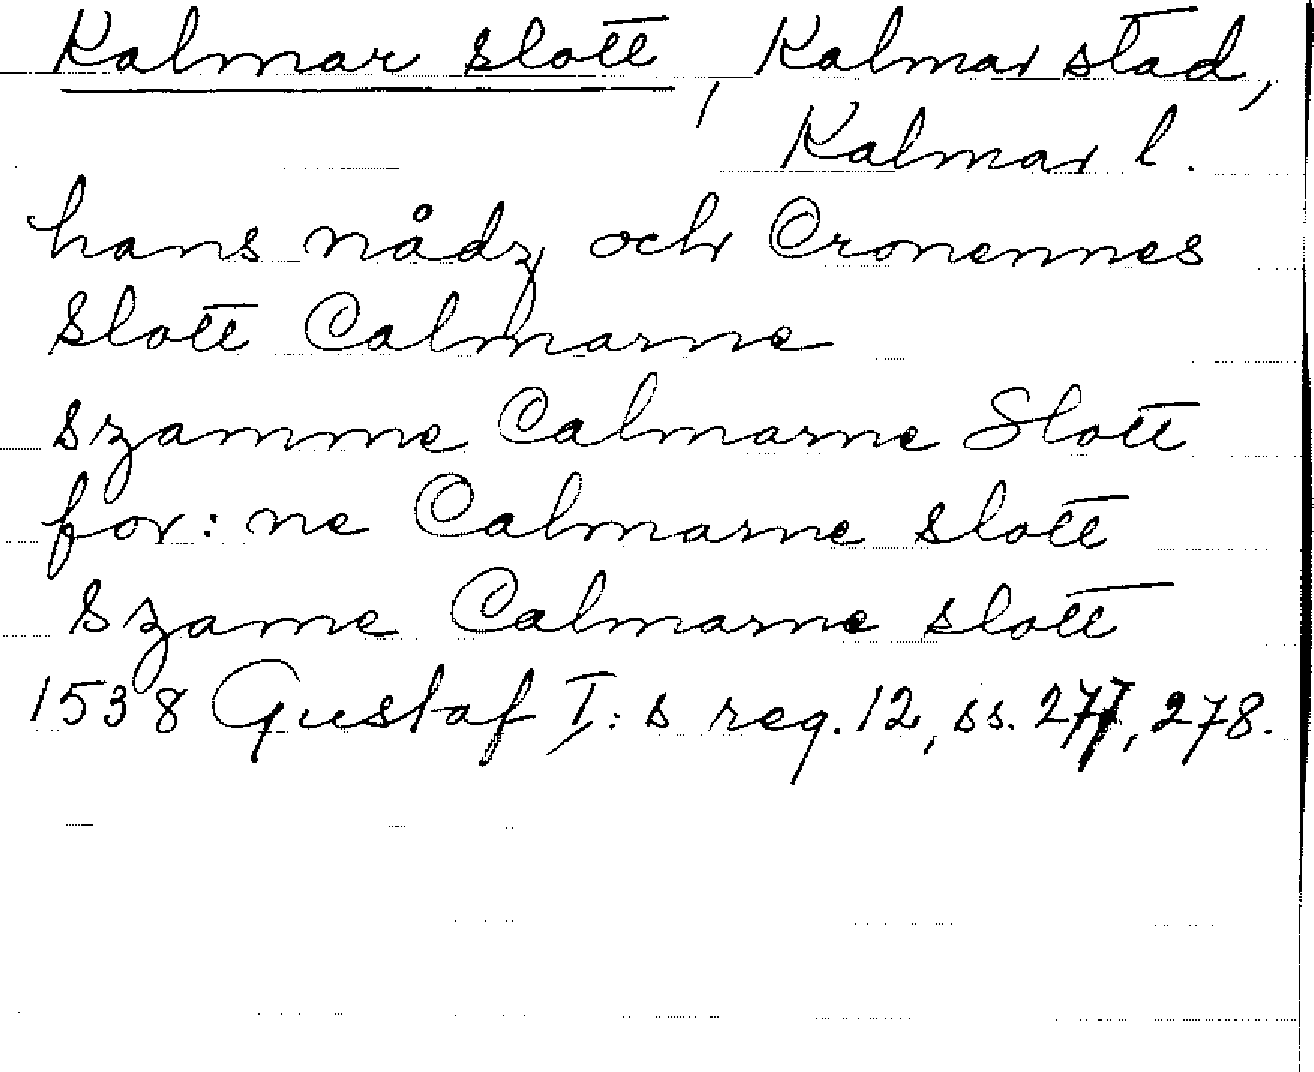 Kalmar slott, Kalmar stad,
Kalmar l.
hans nådz och Cronennes
slott Calmarne
szamme Calmarne Slott
for: ne Calmarne slott
szame Calmarne slott
1538 Gustaf I: s reg. 12, ss. 277, 278.